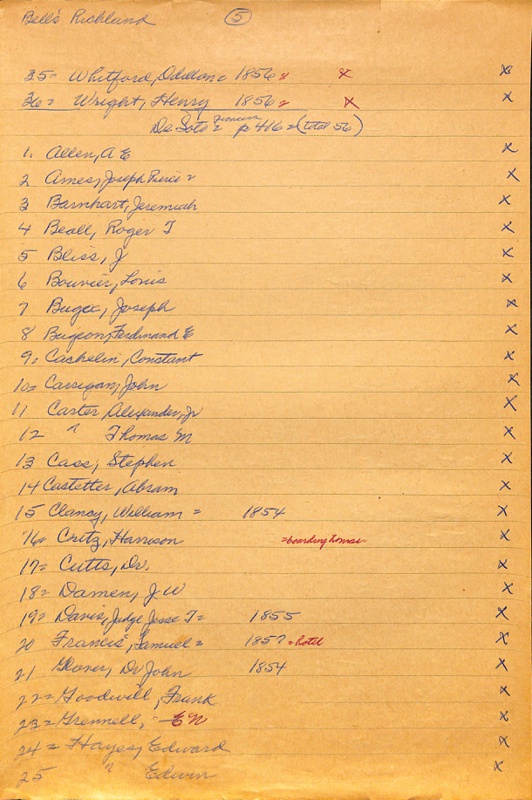 Bell's Richland 5
35- Whitford, 1856 x x
36= Wright, Henry 1856 x x
De Soto = p 416 = (total 56)
1. Allen, A E x
2 Ames, Joseph Pierce x
3 Barnhart, Jeremiah x
4 Beall, Roger T x
5 Bliss, J x
6 Bouvier, Louis x
7 Bugee, Joseph x
8 Bugeon, Ferdinand E x
9. Cachelin, Constant x
10= Carrigan, John x
11 Carter Alexander, Jr x
12 " Thomas M x
13 Cass, Stephen x
14 Castetter, Abram x
15 Clancy, William = 1854 x
16= Critz, Harrison =boarding house x
17= Cutts, Dr. x
18= Damen, J W x
19= Davis, Judge Jesse T= 1855 x
20 Francis, Samuel = 1857 = hotel x
21 Glover, Dr John 1854 x
22= Goodwill, Frank x
23= Grennell, - E N x
24= Hayes, Edward x
25 " Edwin x